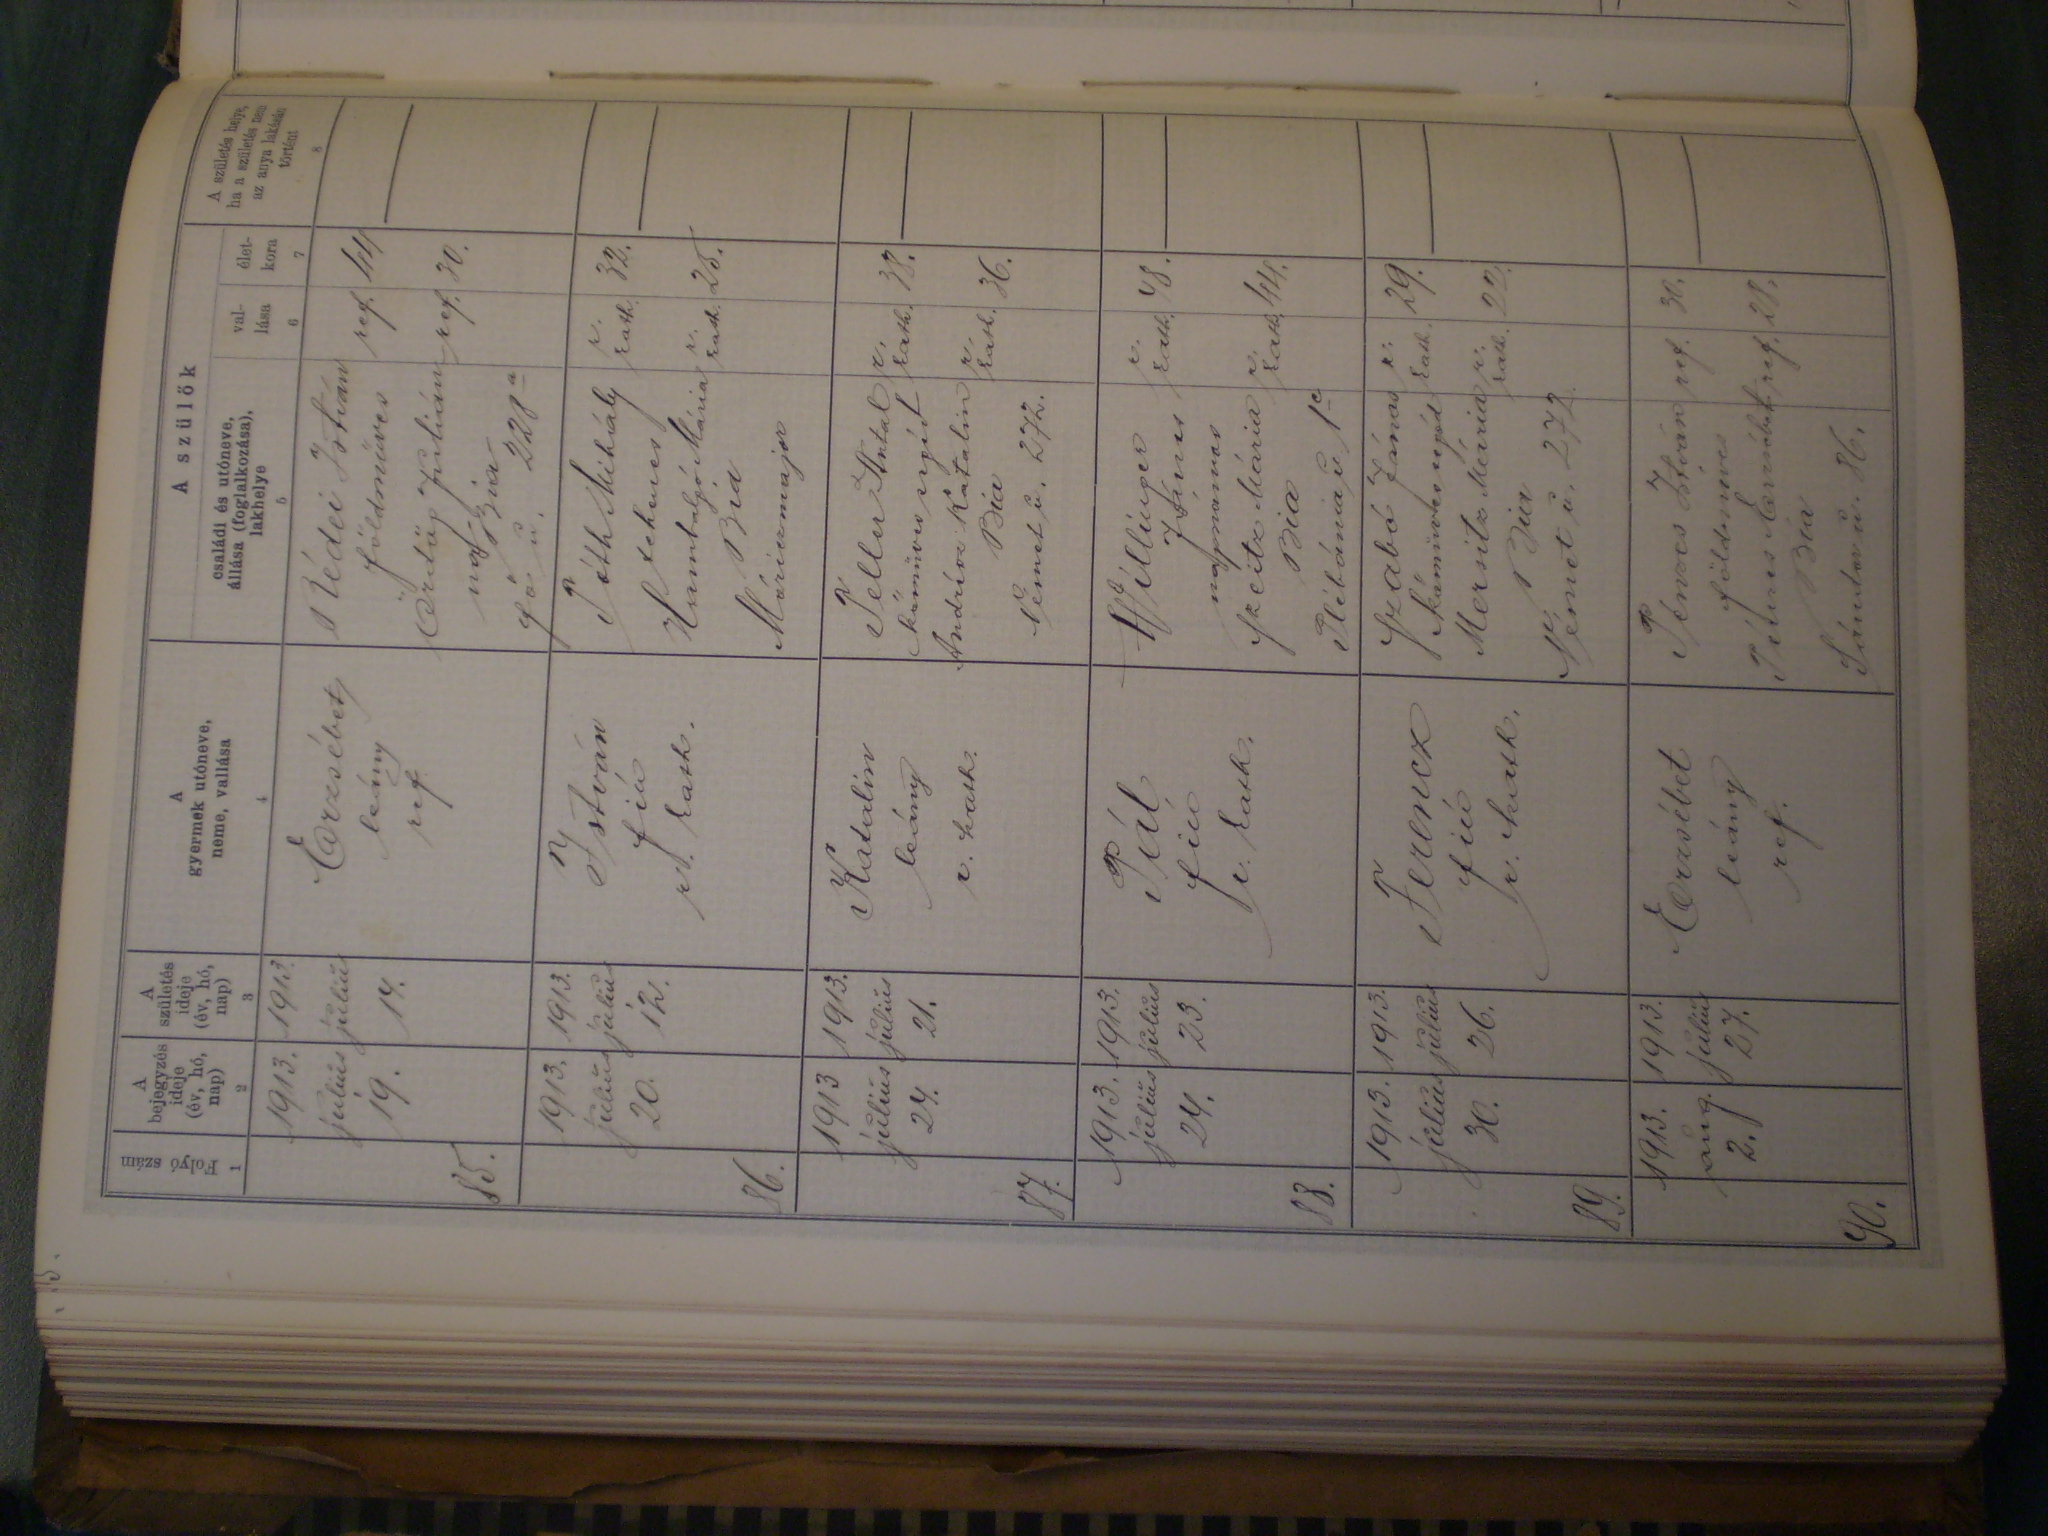 A szülők
Folyó szám
A bejegyzés ideje (év, hó, nap)
A születés ideje (év, hó, nap)
A gyermek utóneve, neme, vallása
családi és utóneve, állása (foglalkozása), lakhelye
val-lása
élet-kora
A születés helye, ha a születés nem az anya lakásán történt
1 2 3 4 5 6 7 8
85.
1913. július 19.
1913. július 14.
Erzsébet
leány
ref.
Rédei István ref. 44
földműves
Ördög Julián ref. 30.
Bia
Fő u. 228 a
86.
1913. július 20.
1913. július 12.
István
fiú
r. kath.
Tóth Mihály r. kath. 32.
Mária r. kath. 25.
Bia
Móriczmajor
87.
1913 július 24.
1913. július 21.
Katalin
leány
r. kath.
Teller Antal r. kath. 38.
kőműves segéd
Katalin r. kath. 36.
Bia
Német u. 272.
88.
1913. július 24.
1913. július 23.
Pál
fiú
r. kath.
János r. kath. 48.
napszámos
Mária r. kath. 44.
Bia
Plébánia u. 1 c
89.
1913. július 30.
1913. július 26.
Ferencz
fiú
r. kath.
Szabó János r. kath. 29.
kőműves segéd
Mersitz Mária r. kath. 22.
Bia
Német u. 272.
90.
1913. aug. 2.
1913. július 27.
Erzsébet
leány
ref.
István ref. 30.
földműves
Erzsébet ref. 28.
Bia
Sándor u. 86.